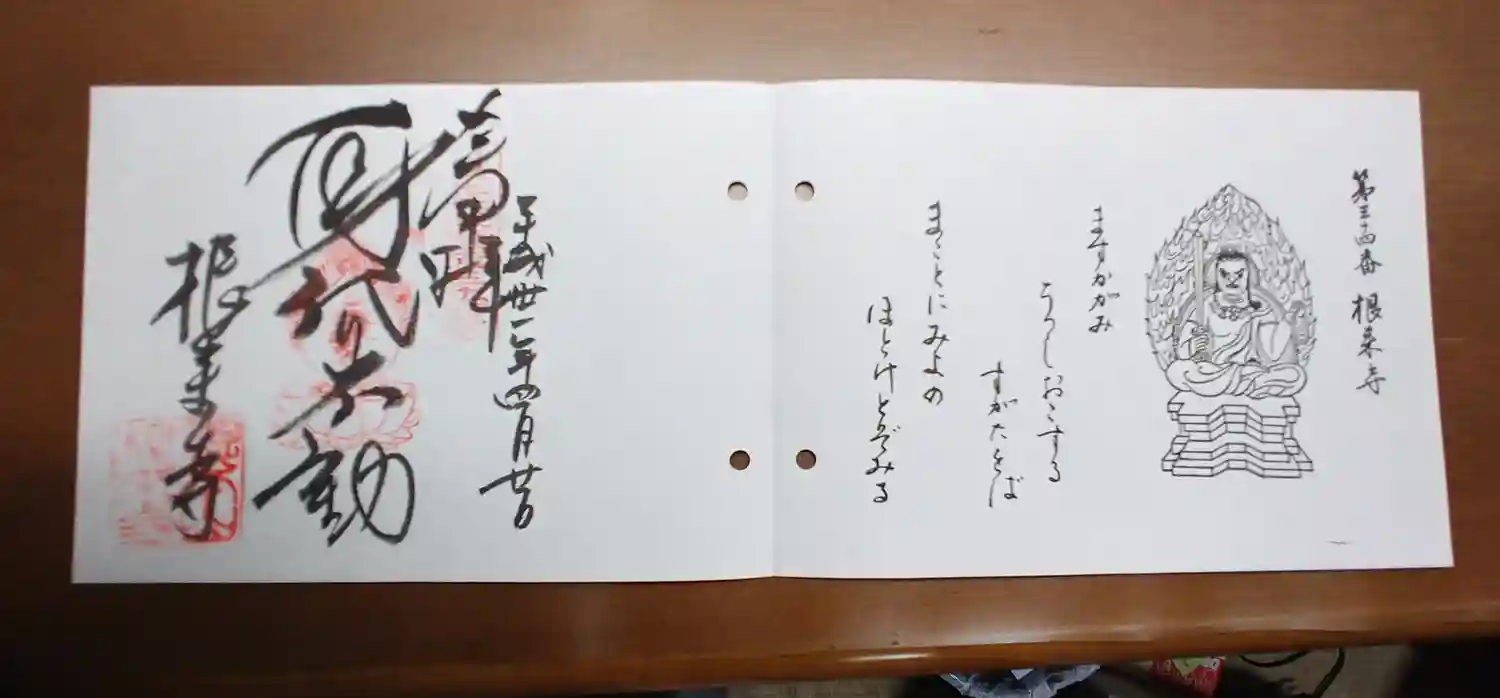 第三十四番 根来寺
ますかがみ
うつしおこする
すがたをば
まことにみよの
ほとけとぞみる
平成丗一年四月廿日
身代り不動
根来寺